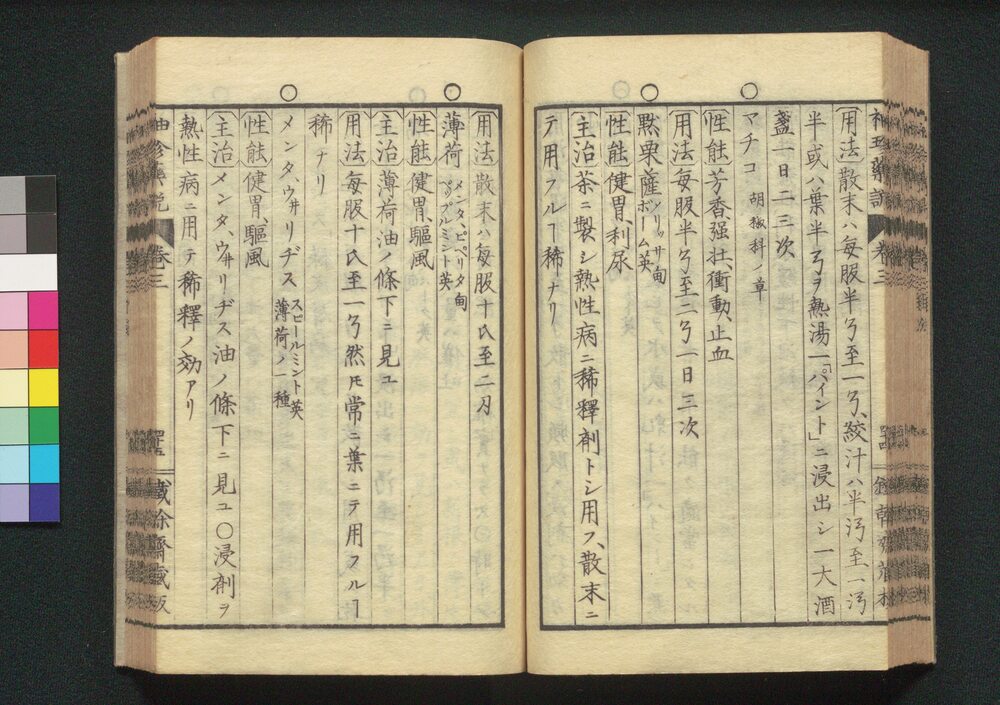 〔用法〕散末ハ毎服半ʒ至一ʒ、絞汁ハ半℥至一℥
半或ハ葉半ʒヲ熱湯一「パイント」ニ浸出シ一大酒
盞一日二三次
〇マチコ 胡椒科ノ草
〔性能〕芳香、强壯、衝動、止血
〔用法〕毎服半ʒ至二ʒ一日三次
〇㸃栗薩 メリッサ甸 ボーム英
〔性能〕健胃、利尿
〔主治〕茶ニ製シ熱性病ニ稀釋劑トシ用フ、散末ニ
テ用フルヿ稀ナリ
〔用法〕散末ハ毎服十氏至二刃
〇薄荷 メンタ、ピペリタ甸 ペップルミント英
〔性能〕健胃、驅風
〔主治〕薄荷油ノ條下ニ見ユ
〔用法〕毎服十氏至一ʒ然𪜈常ニ葉ニテ用フルヿ
稀ナリ
〇メンタ、ウ井リヂス スピールミント英 薄荷ノ一種
〔性能〕健胃、驅風
〔主治〕メンタ、ウ井リヂス油ノ條下ニ見ユ〇浸劑ヲ
熱性病ニ用テ稀釋ノ効アリ
袖珍藥説 卷三